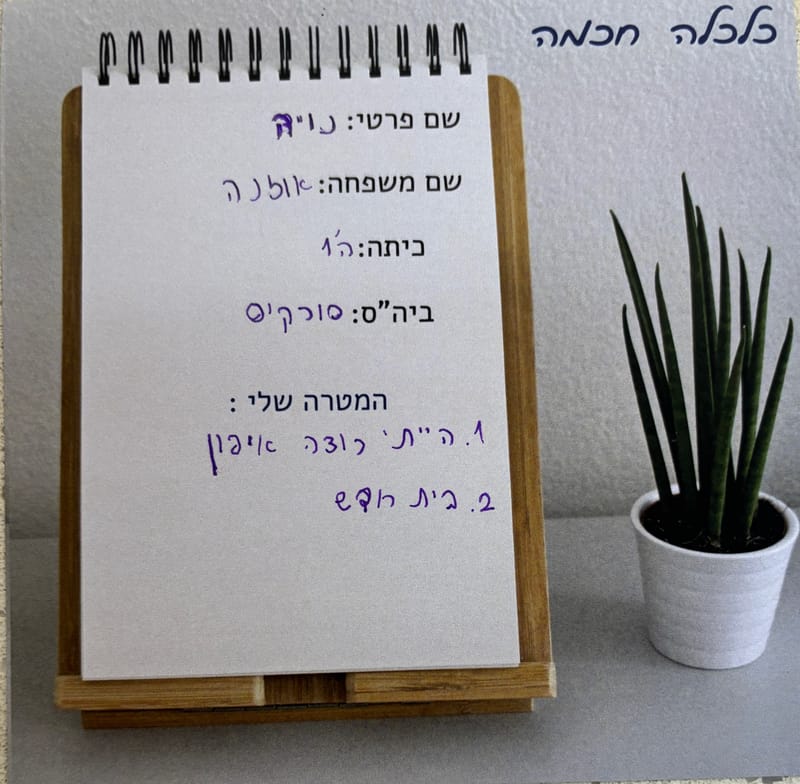 כלכלה חכמה
שם פרטי: נויה
שם משפחה: אוזנה
כיתה: ה'1
ביה"ס: סורקיס
המטרה שלי :
1. הייתי רוצה איפון
2. בית חדש